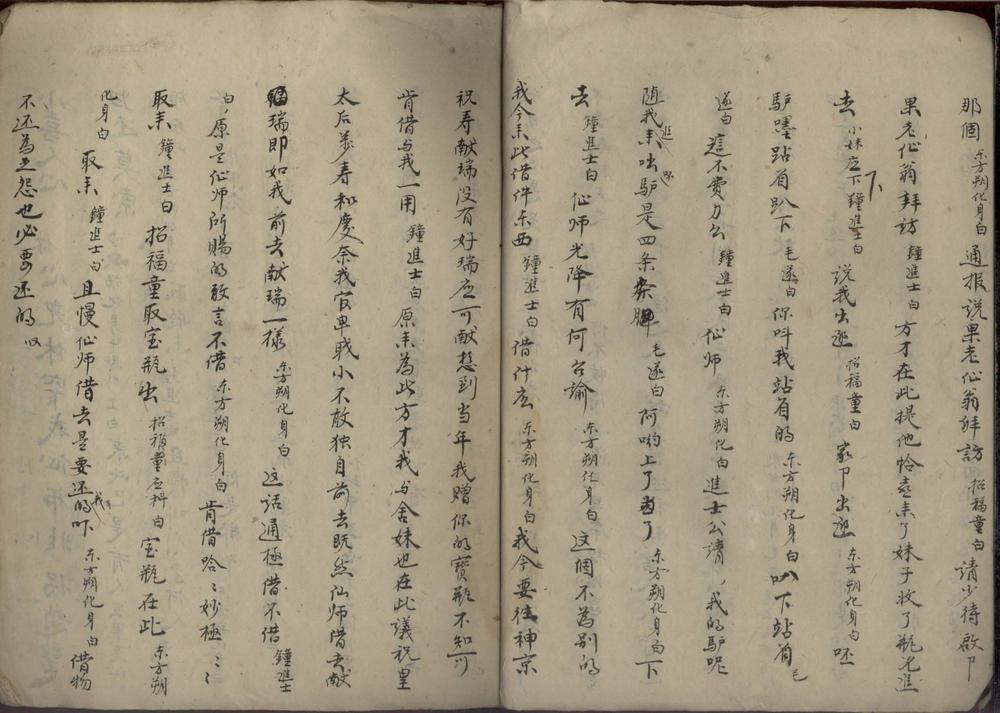 那個東方朔化身白通報說果老仙翁拜訪招福童白請少待啟卩
果老仙翁拜訪鐘進士白方才在此提他恰遠來了妹子收了瓶先進
去小妹应下下鐘進士白說我出迎招福童白家卩出迎東方朔化身白呸
馿嚜跕首趴下毛遂白你叫我站首的東方朔化身白叭下站首毛
遂白這不費力么鐘進士白仙師東方朔化白進士公請我的馿呢
隨我進來咄馿是四条脚毛遂白阿喲上了當了東方朔化身白下
去鐘進士白仙師光降有何台諭東方朔化身白这個不為別的
我今來此借件东西鐘進士白借什庅东方朔化身白我今要往神京
祝寿献瑞没有好瑞应可献想到当年我贈你的寶瓶不知可
肯借与我一用鐘進士白原来為此方才我与舍妹也在此議祝皇
太后萬寿和慶奈我官卑戝小不敢独自前去既然仙師借去献
瑞即如我前去献瑞一樣东方朔化身白这話通極借不借鐘進士
白原是仙師所賜的敢言不借东方朔化身白肯借哈〻妙極〻〻
取来鐘進士白招福童取宝瓶出招福童应科白宝瓶在此东方朔
化身白取来鐘進士白且慢仙師借去是要还我的吓东方朔化身白借物
不还為之怨也必要还的収